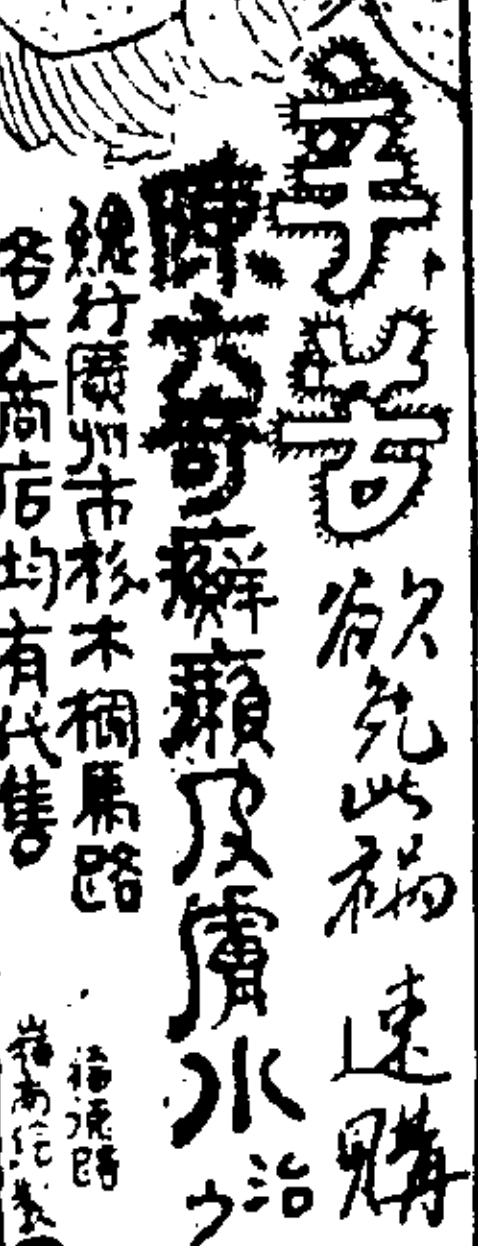 辛苦 欲免此禍 速購
陳六奇癬癩皮膚水 治
總行廣州市杉木欄馬路
各大商店均有代售